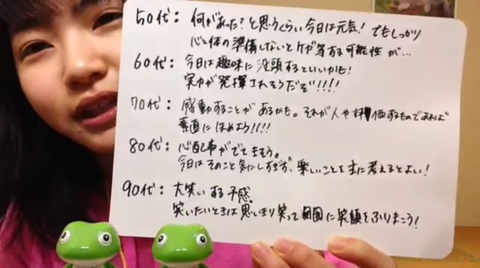 50代：何があった？と思うくらい今日は元気！でもしっかり
心と体の準備しないとケガする可能性が…
60代：今日は趣味に没頭するといいかも！
実力が発揮されそうだぞ!!!!
70代：感動することがあるかも。それが人や評価するものであれば
素直にほめよう!!!!
80代：心配事がでてきそう。
今日はそのこと気にしすぎず、楽しいことを主に考えるとよい！
90代：大笑いする予感。
笑いたいときは思いきり笑って周囲に笑顔をふりまこう！